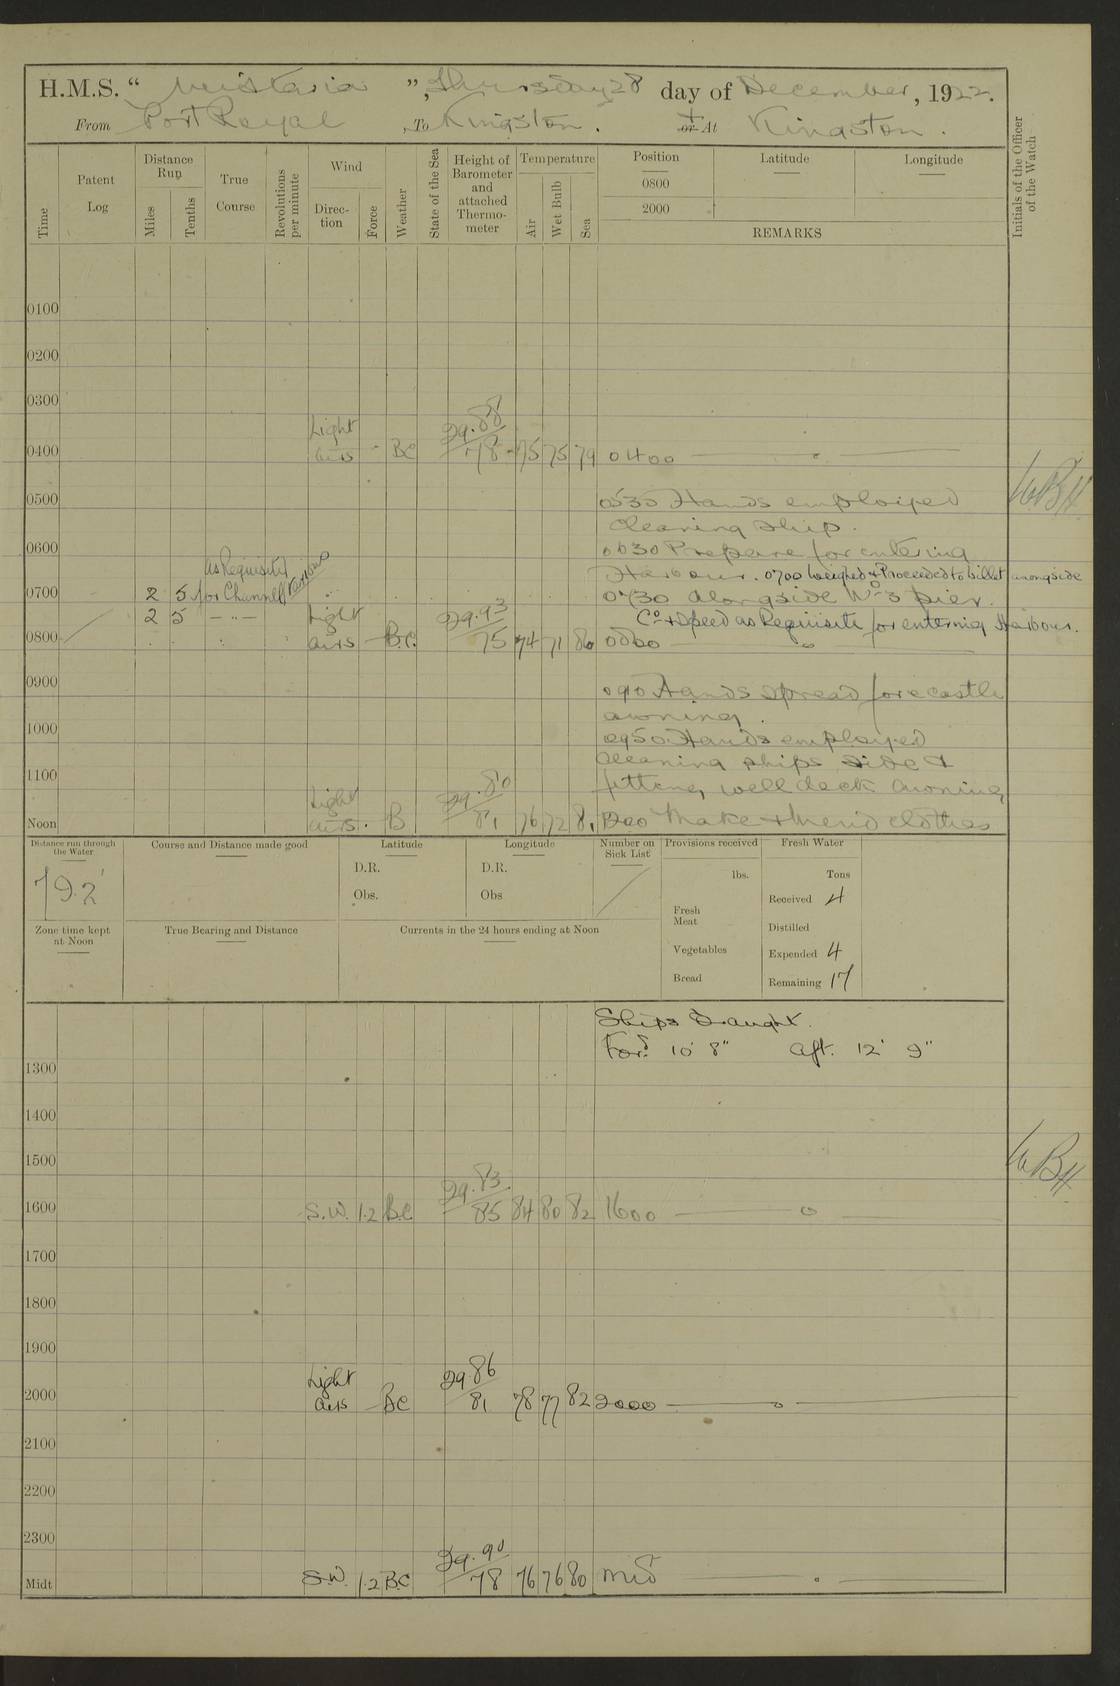 H.M.S. “ Wistaria ”, Thursday 28 day of December, 1922.
From Port Royal, To Kingston. + or At Kingston.
Time
Patent Log
Distance Run
Miles
Tenths
True Course
Revolutions per minute
Wind
Direction
Force
Weather
State of the Sea
Height of Barometer and attached Thermometer
Temperature
Air
Wet Bulb
Sea
Position
0800
2000
Latitude
Longitude
REMARKS
Initials of the Officer of the Watch
0100
0200
0300
0400 Light airs - BC 29.88 78 75 75 79 0400
WBH
0500 0530 Hands employed
cleaning ship.
0600 0630 Prepare for entering
Harbour. 0700 Weighed & Proceeded to billet alongside
0700 2 5 As Requisite for Channel
0730 alongside No 3 pier.
2 5 — " —
Co & Speed as Requisite for entering Harbour.
0800 Light airs B.C. 29.93 75 74 71 80 0800
0900 0910 Hands spread forecastle
awning.
1000 0950 Hands employed
cleaning ships side &
1100 fitting well deck awning
Noon Light airs. B 29.80 81 76 72 81 Make & Mend clothes
Distance run through the Water
Course and Distance made good
Latitude
D.R.
Obs.
Longitude
D.R.
Obs
Number on Sick List
Provisions received
lbs.
Fresh Meat
Vegetables
Bread
Fresh Water
Tons
Received 4
Distilled
Expended 4
Remaining 17
Zone time kept at Noon
True Bearing and Distance
Currents in the 24 hours ending at Noon
Ships Draught.
Ford 10' 8" aft. 12' 9"
1300
1400
1500
WBH
1600 S.W. 1.2 B.C 29.83 85 84 80 82 1600
1700
1800
1900
2000 Light airs BC 29.86 81 78 77 82 2000
2100
2200
2300
Midt S.W. 1.2 B.C 29.90 78 76 76 80 Mid